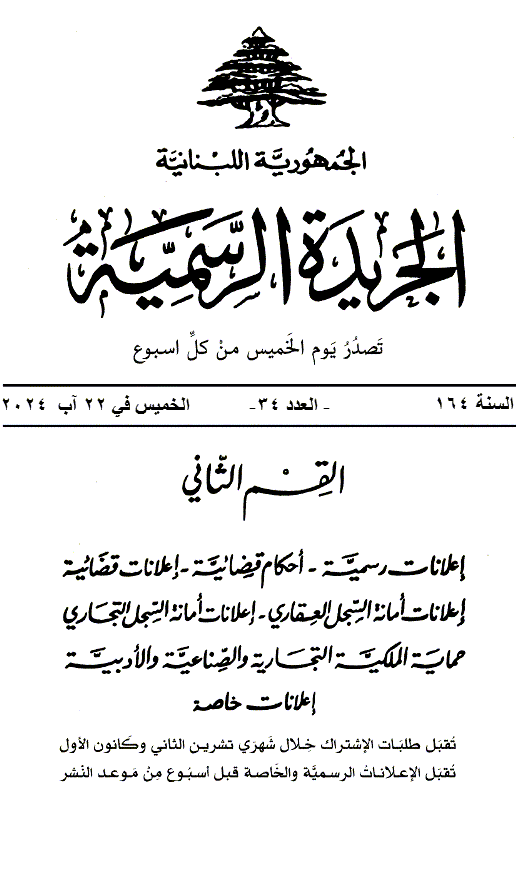 الجُمهُوريَّة اللبْنانيَّة
الجَريدَة الرَّسميَّة
تَصدُرُ يَوم الخَميس منْ كلِّ اسبوع
السنة ١٦٤ - العدد ٣٤- الخميس في ٢٢ آب ٢٠٢٤
القِسْم الثّاني
إعلانات رسميَّة - أحكام قضائيَّة - إعلانات قضائية
إعلانات أمانة السِّجل العِقاري - إعلانات أمانة السِّجل التجاري
حماية الملكيَّة التجارية والصِّناعيَّة والأدبيَّة
إعلانات خاصة
تُقبَل طلبَات الإشتراك خِلال شَهرَي تشرين الثاني وكَانون الأول
تُقبَل الإعلاناتُ الرسميَّة والخَاصة قَبل أسبُوع مِنْ مَوعد النَشر